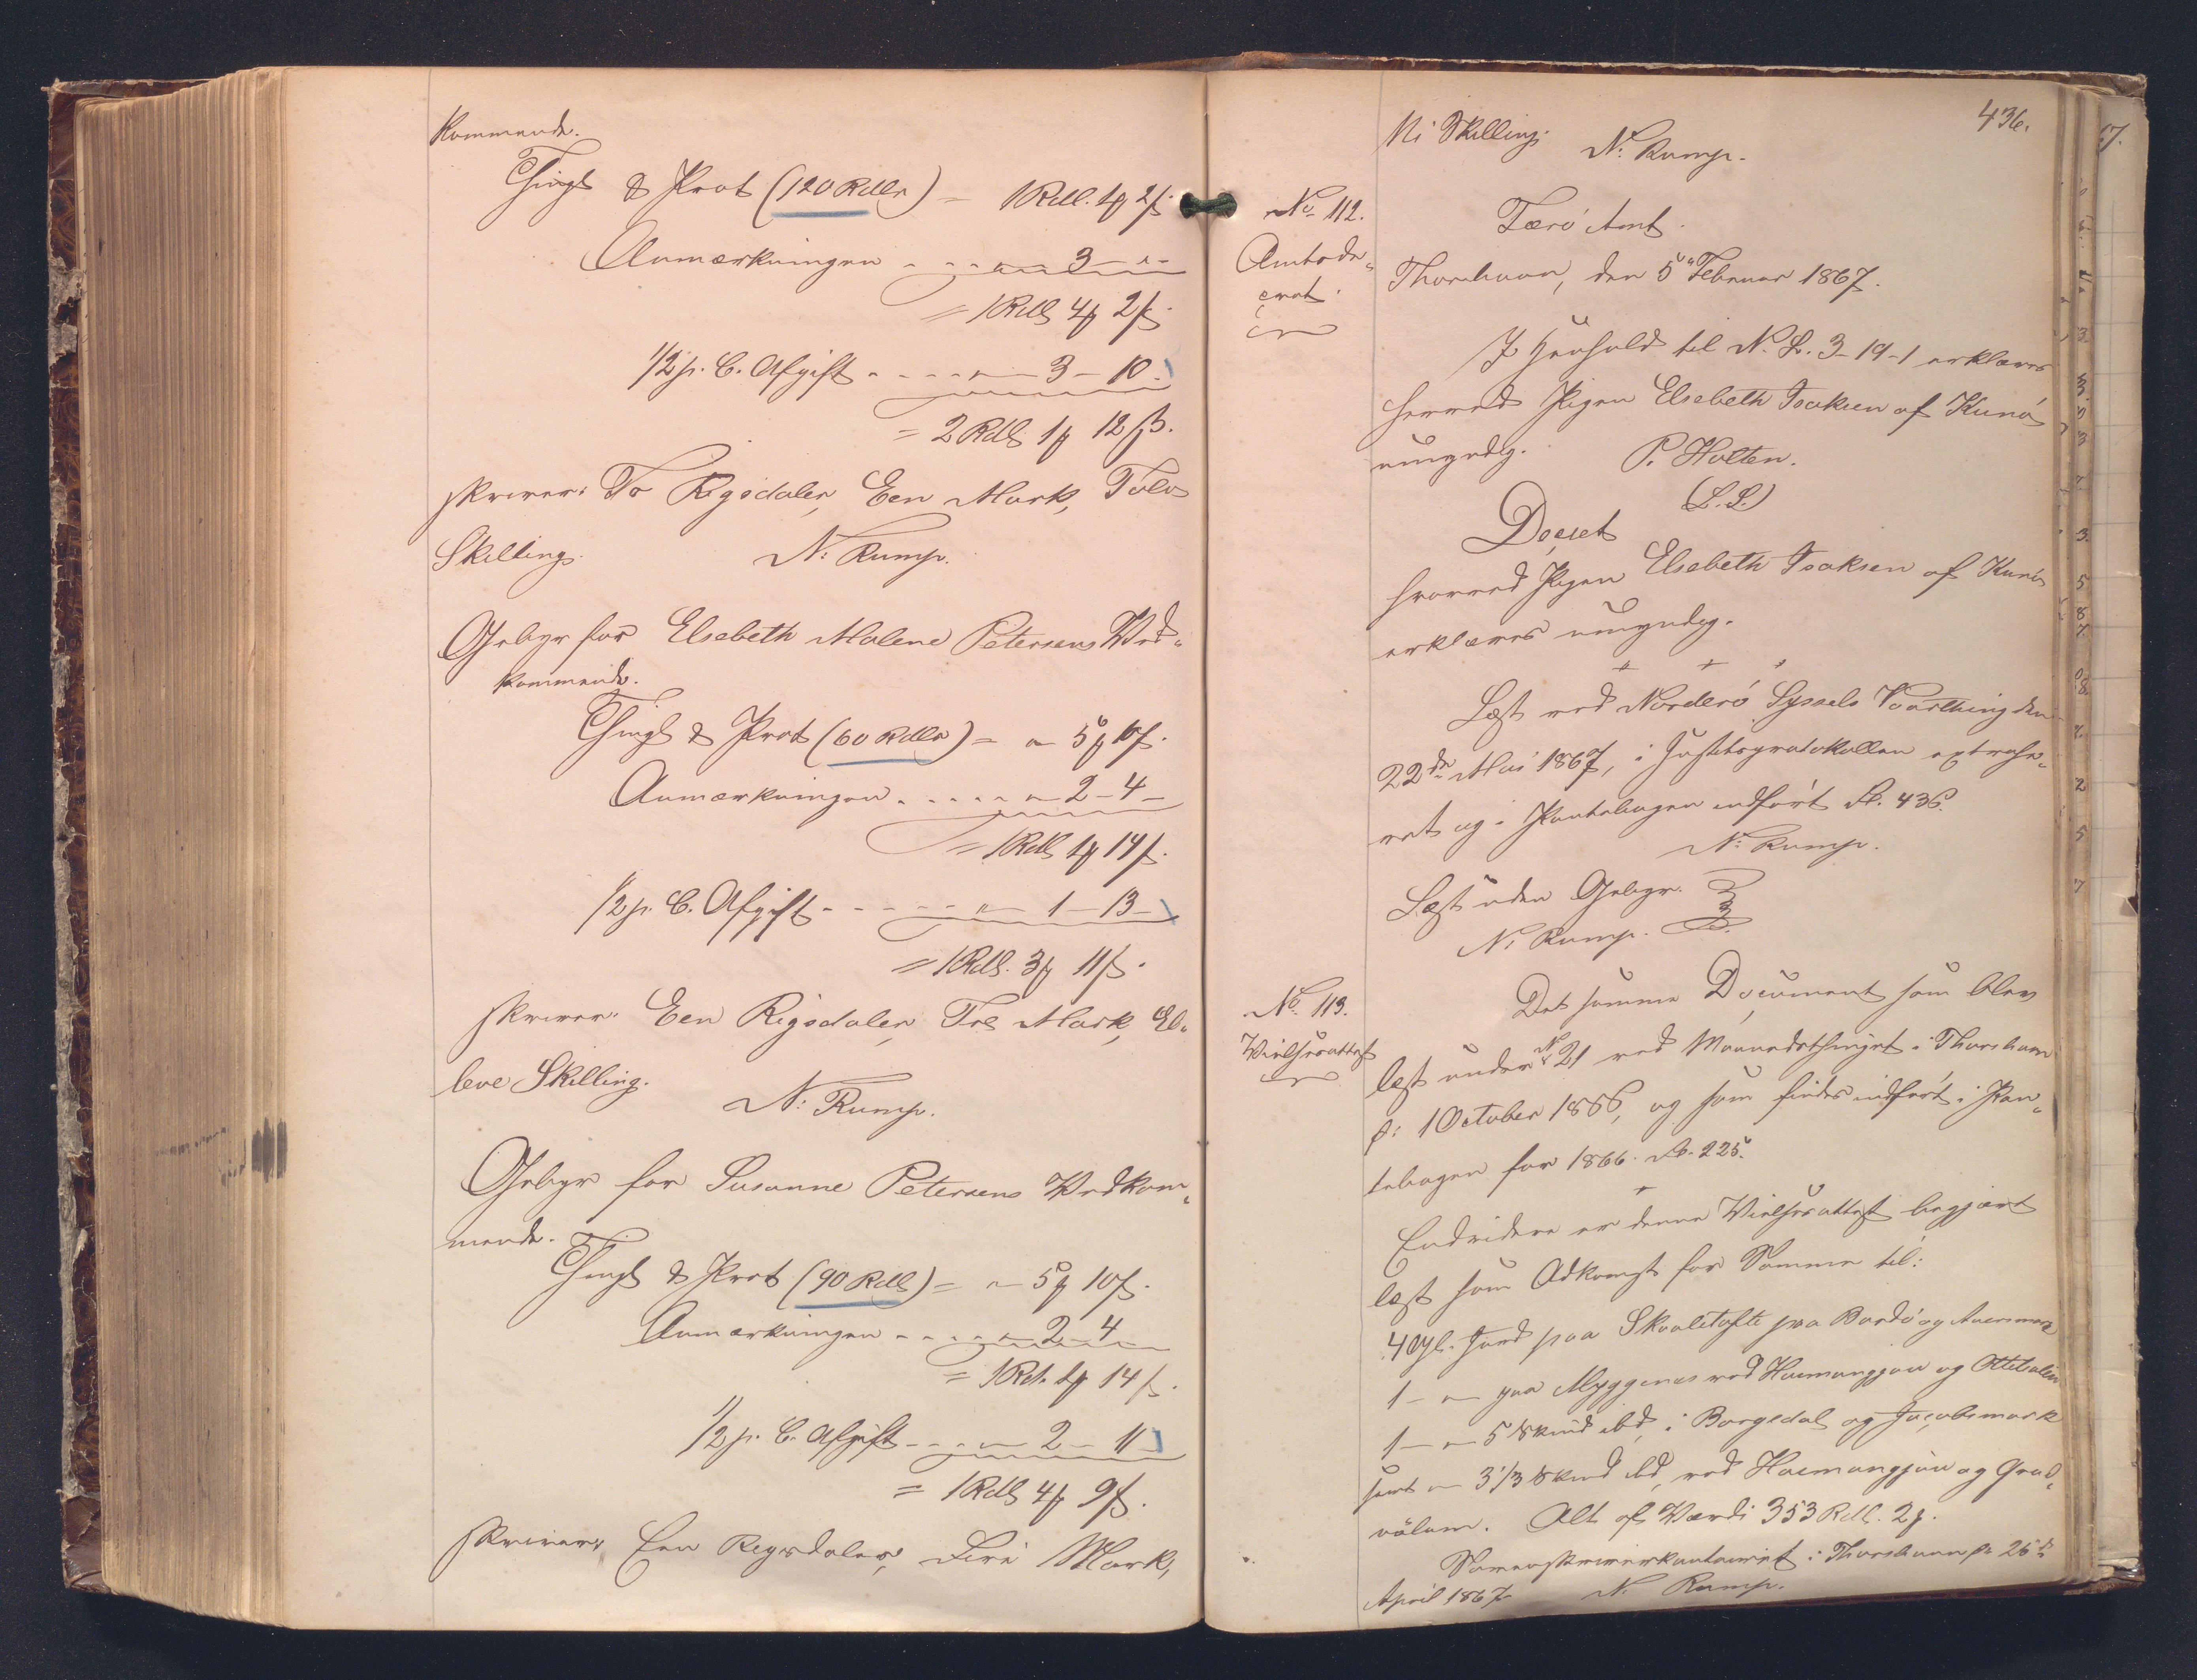 kommende.
Thingl & Prot (120 Rdlr) = 1 Rdl. 1 ₰ 2 ß.
Anmærkningen - - - - " 3 - " -
= 1 Rdl 4 ₰ 2 ß.
1/2 p. C. Afgift - - - - " - 3 - 10 -
= 2 Rdl 1 ₰ 12 ß.
skriver: To Rigsdaler, Een Mark, Tolv
Skilling. N: Rump.
Gebyr for Elsebeth Malene Petersens Ved-
kommende.
Thingl & Prot (60 Rdlr) = " 5 ₰ 10 ß.
Anmærkningen - - - - " 2 - 4 -
= 1 Rdl 1 ₰ 14 ß.
1/2 p. C. Afgift - - - - - " - 1 - 13 -
= 1 Rdl. 3 ₰ 11 ß.
skriver: Een Rigsdaler, Tre Mark, El-
leve Skilling.
N: Rump.
Gebyr for Susanne Petersens Vedkom-
mende.
Thingl & Prot (90 Rdl) = " 5 ₰ 10 ß.
Anmærkningen - - - - " 2 - 4 -
= 1 Rd. 1 ₰ 14 ß.
1/2 p. C. Afgift - - - " 2 - 11 -
= 1 Rdl 4 ₰ 9 ß.
skriver: Een Rigsdaler, Fire Mark,
436.
Ni Skilling.
N: Rump.
No 112.
Amtsde-
cret.
Færö Amt.
Thorshavn, den 5 Februar 1867.
I Henhold til N. L. 3-19-1 erklæres
herved Pigen Elsebeth Isaksen af Kunö
umyndig. P. Holten.
(L. S.)
Decret
hvorved Pigen Elsebeth Isaksen af Kunö
erklæres umyndig.
Læst ved Norderö Syssels Vaarthing den
22de Mai 1867, i Justitsprotokollen extrahe-
ret og i Pantebogen indført Fol. 436.
N: Rump.
Læst uden Gebyr.
N: Rump.
No 113.
Vielsesattest
Det samme Document som blev
læst under No 21 ved Maanedsthinget i Thorshavn
d: 1 October 1866, og som findes indført i Pan-
tebogen for 1866 Fol. 225.
Endvidere er denne Vielsesattest begjært
læst som Adkomst for Samme til:
4 Gyl. Jord paa Skaaletofte paa Bordö og Anersmark
1 - " paa Myggenes ved Haemangjow og
1 - " 5 Skind ibd, i Borgedal og Jacobsmark
samt " 3 1/3 Skind ibd, ved Haemangjow og Grad-
völum. Alt af Værdi 353 Rdl. 2 ₰.
Sorenskriverkontoiret i Thorshavn d: 26de
April 1867. N: Rump.